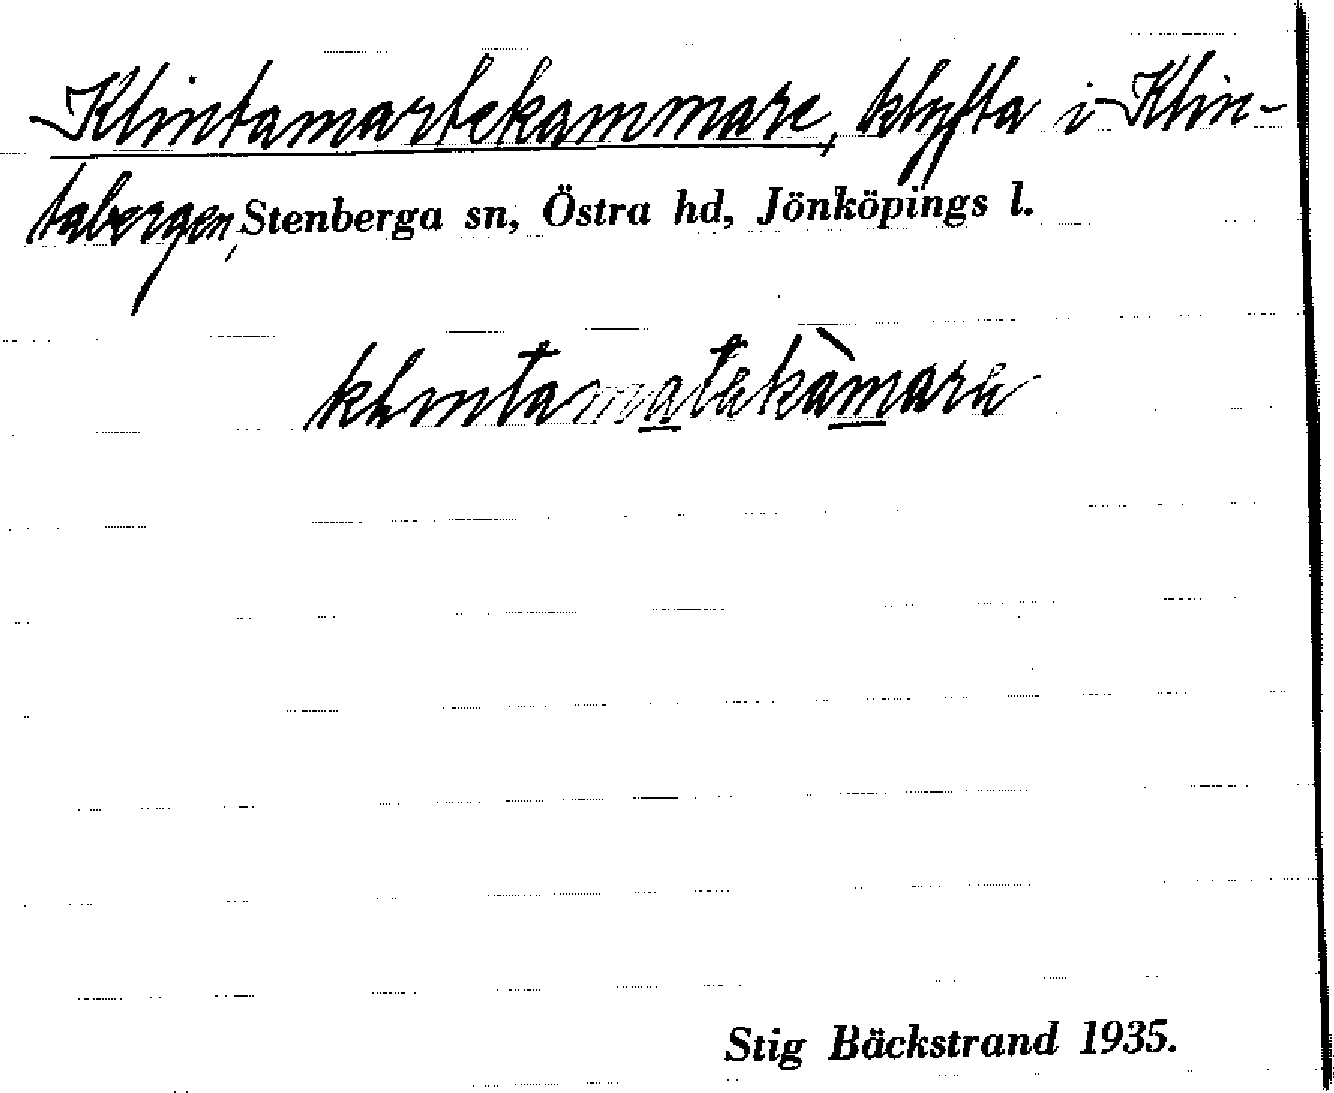 Klintamartekammare, klyfta i Klin-
tabergen, Stenberga sn, Östra hd, Jönköpings l.
klintamatekàmara
Stig Bäckstrand 1935.